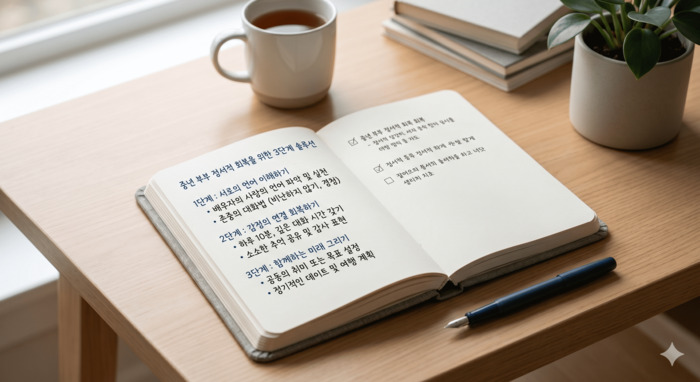 중년 부부 정서적 회복을 위한 3단계 솔루션
1단계 : 서로의 언어 이해하기
• 배우자의 사랑의 언어 파악 및 실천
• 존중의 대화법 (비난하지 않기, 경청)
2단계 : 감정의 연결 회복하기
• 하루 10분, 깊은 대화 시간 갖기
• 소소한 추억 공유 및 감사 표현
3단계 : 함께하는 미래 그리기
• 공동의 취미 또는 목표 설정
• 정기적인 데이트 및 여행 계획
중년 부부 정서적 회복